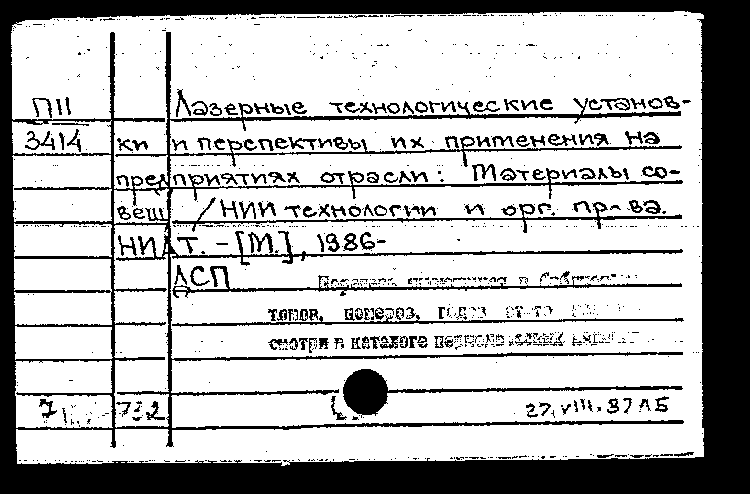 П11 Лазерные технологические установ-
3414 ки и перспективы их применения на
предприятиях отрасли: Материалы со-
вещ. / НИИ технологии и орг. пр-ва.
НИАТ. - [М.], 1986-
ДСП
томов, номеров, годов
смотри в каталоге
7 732 27.VIII.87 ЛБ